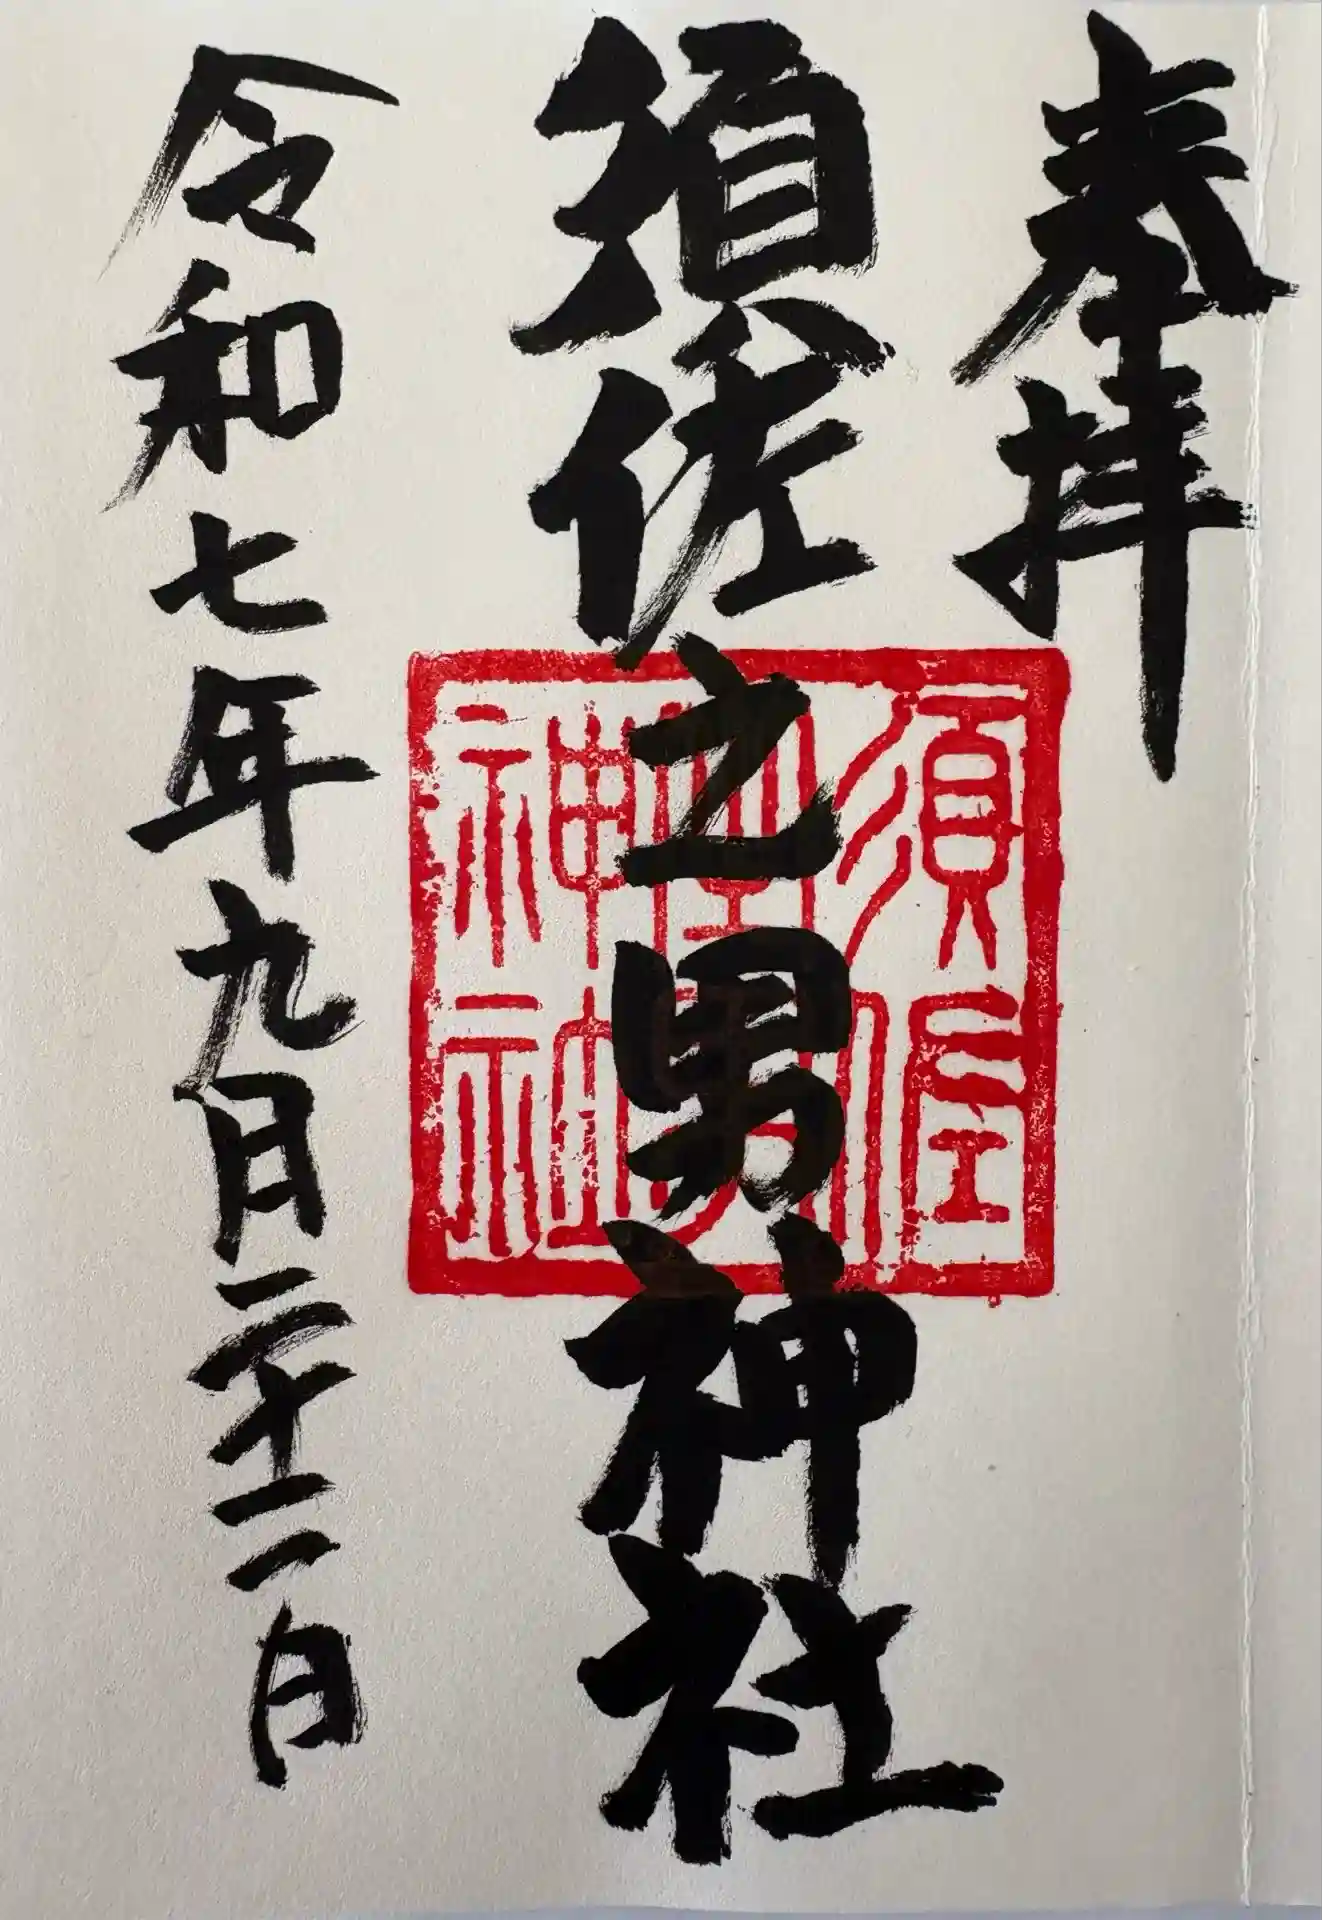 奉拝
須佐之男神社
令和七年九月二十二日
須佐
之男
神社